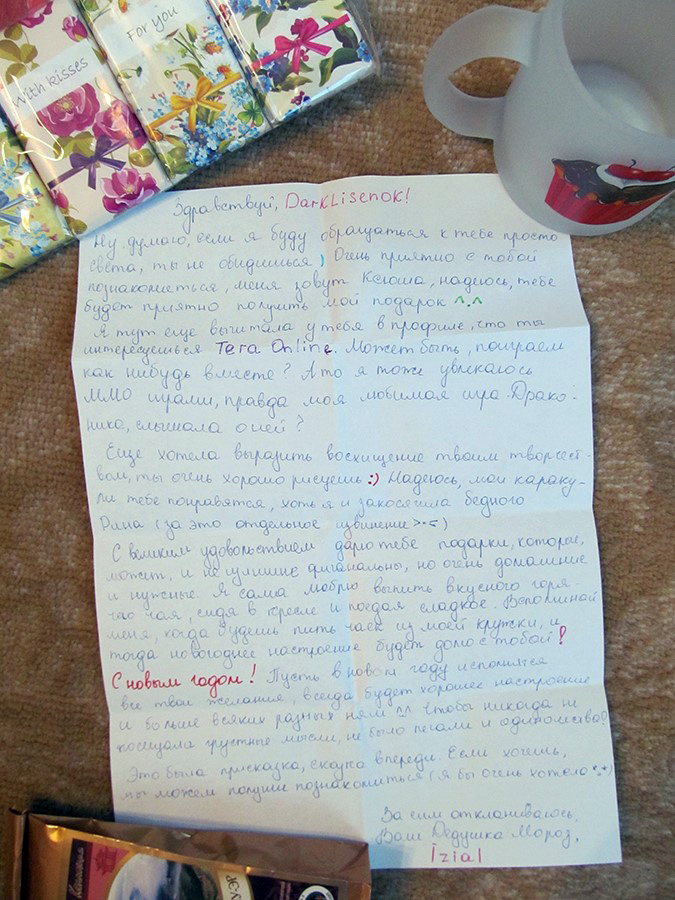 With kisses
For you
Здравствуй, DarkLisenok!
Ну, думаю, если я буду обращаться к тебе просто
Света, ты не обидишься) Очень приятно с тобой
познакомиться, меня зовут Ксюша, надеюсь, тебе
будет приятно получить мой подарок ^.^
Я тут еще вычитала у тебя в профиле, что ты
интересуешься Tera Online. Может быть, поиграем
как нибудь вместе? А то я тоже увлекаюсь
ММО играми, правда моя любимая игра - Драко-
ника, слышала о ней?
Еще хотела выразить восхищение твоим творчест-
вом, ты очень хорошо рисуешь :) Надеюсь, мои караку-
ли тебе понравятся, хоть я и закосячила бедного
Рина (за это отдельное извинение >.<)
С великим удовольствием дарю тебе подарки, которые,
может, и не шибко фигональны, но очень домашние
и нужные. Я сама люблю выпить вкусного горя-
чего чая, сидя в кресле и поедая сладкое. Вспоминай
меня, когда будешь пить чаек из моей кружки, и
тогда новогоднее настроение будет долго с тобой!
С новым годом! Пусть в новом году исполнятся
все твои желания, всегда будет хорошее настроение
и больше всяких разных ням ^^ Чтобы никогда не
посещали грустные мысли, не было печали и одиночества!
Это была присказка, сказка впереди. Если хочешь,
мы можем получше познакомиться (я бы очень хотела *.*)
За сим откланиваюсь,
Ваш Дедушка Мороз,
Izial